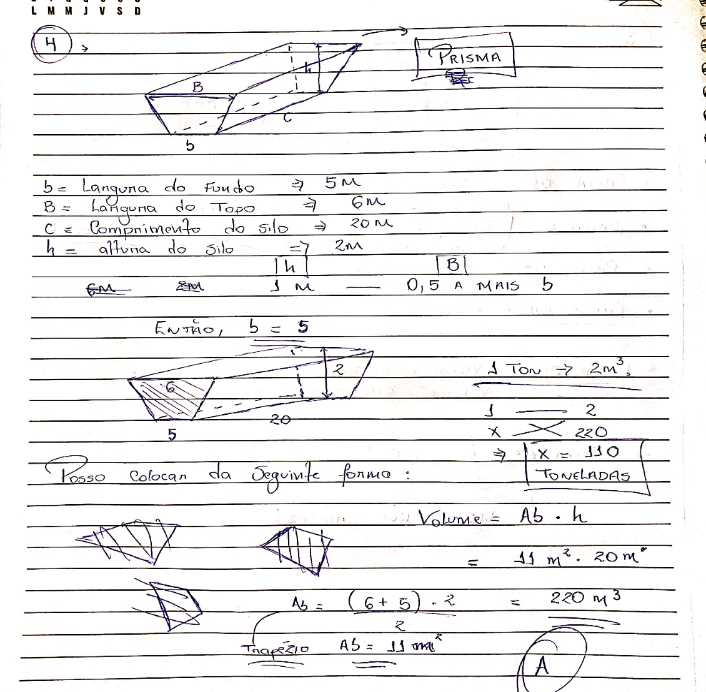 L M M J V S D
4
PRISMA
B
h
C
b
b = Largura do Fundo ⇒ 5M
B = Largura do Topo ⇒ 6M
C = Comprimento do silo ⇒ 20M
h = altura do silo ⇒ 2M
|h| |B|
6M 2M 1 M — 0,5 A MAIS b
ENTÃO, b = 5
6
2
20
5
1 TON → 2m³.
1 — 2
x 220
⇒ x = 110
TONELADAS
Posso colocar da Seguinte forma :
Volume = Ab · h
= 11 m² · 20 m
Ab = (6 + 5) · 2 = 220 m³
2
Trapézio Ab = 11 m²
A